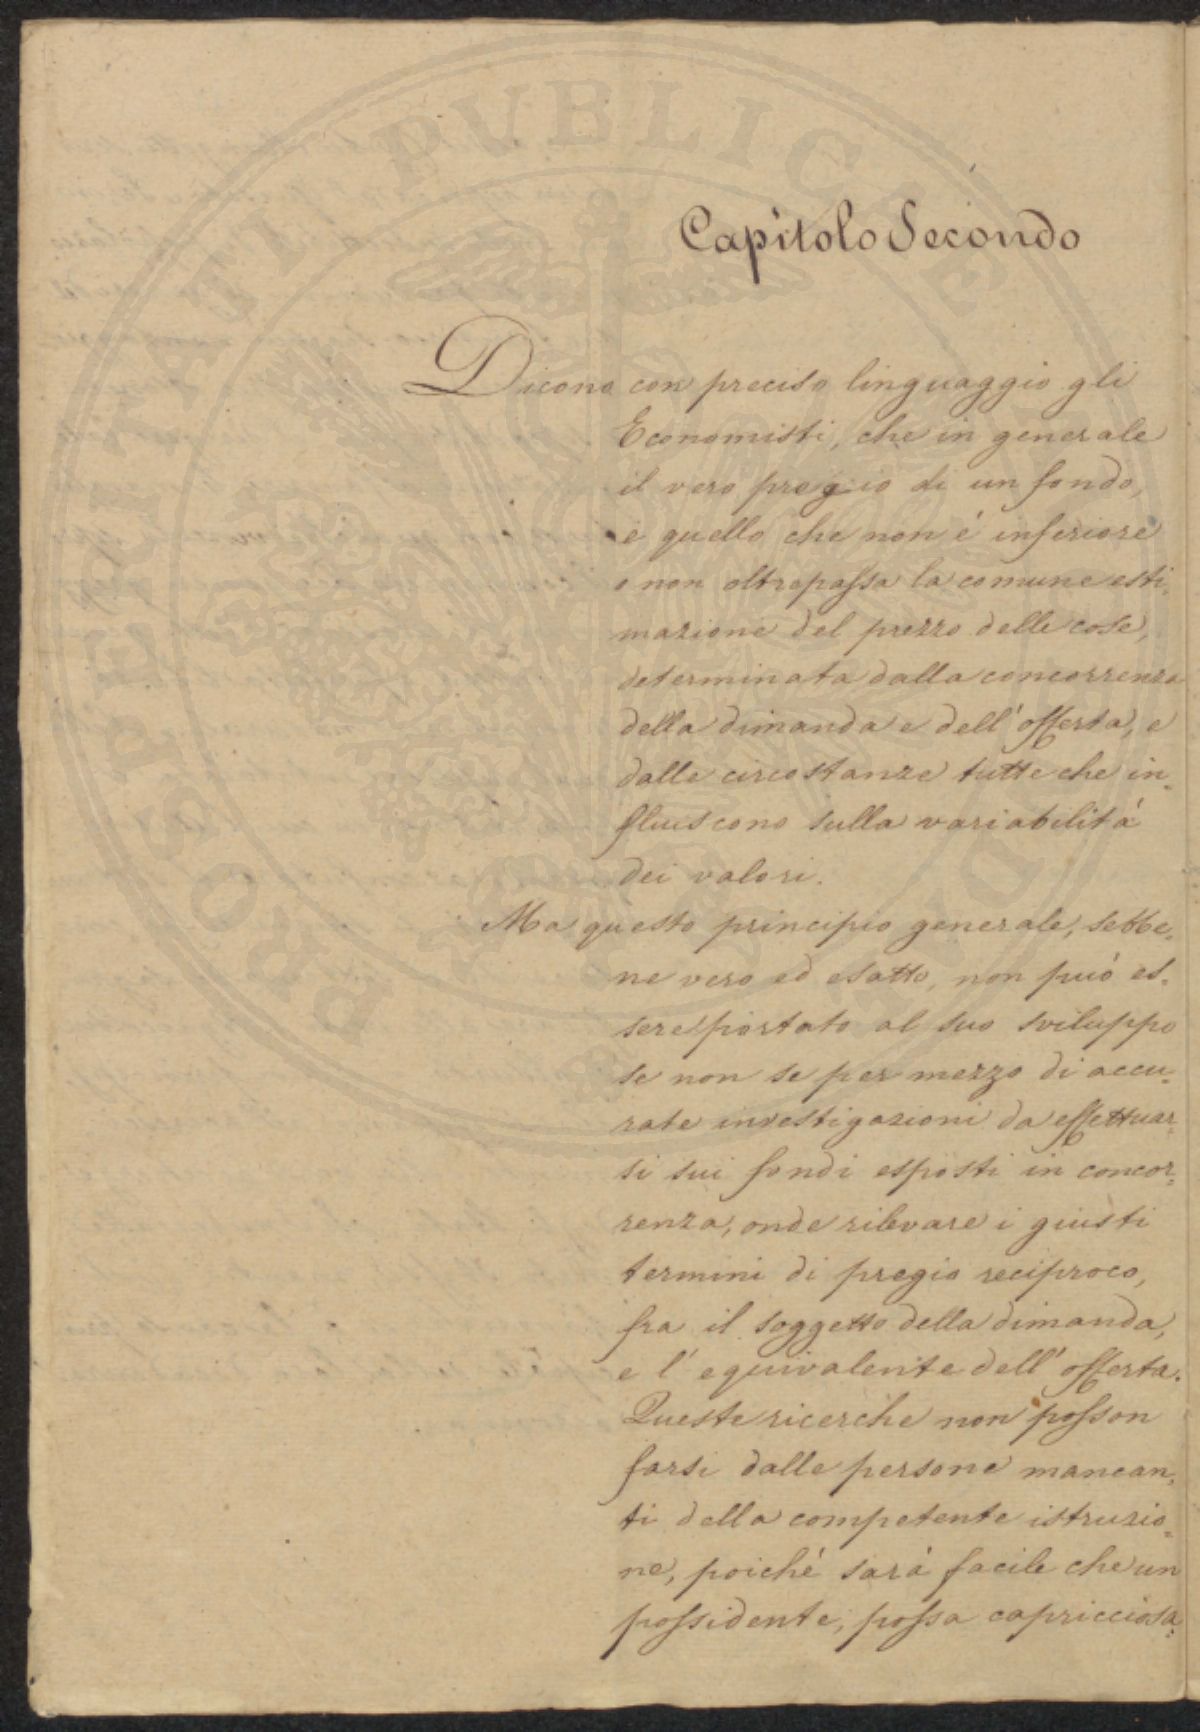 Capitolo Secondo
Dicono con preciso linguaggio gli
Economisti, che in generale
il vero pregio di un fondo,
è quello che non é inferiore
o non oltrepassa la comune esti,
mazione del prezzo delle cose,
determinata dalla concorrenza
della dimanda e dell'offerta, e
dalle circostanze tutte che in,
fluiscono sulla variabilitá
dei valori.
Ma questo principio generale, sebbe,
ne vero ed esatto, non puó es,
sere portato al suo sviluppo
se non se per mezzo di accu,
rate investigazioni da effettuar,
si sui fondi esposti in concor,
renza, onde rilevare i giusti
termini di pregio reciproco,
fra il soggetto della dimanda,
e l'equivalente dell'offerta.
Queste ricerche non posson
farsi dalle persone mancan,
ti della competente istruzio,
ne, poiché sará facile che un
possidente, possa capricciosa,